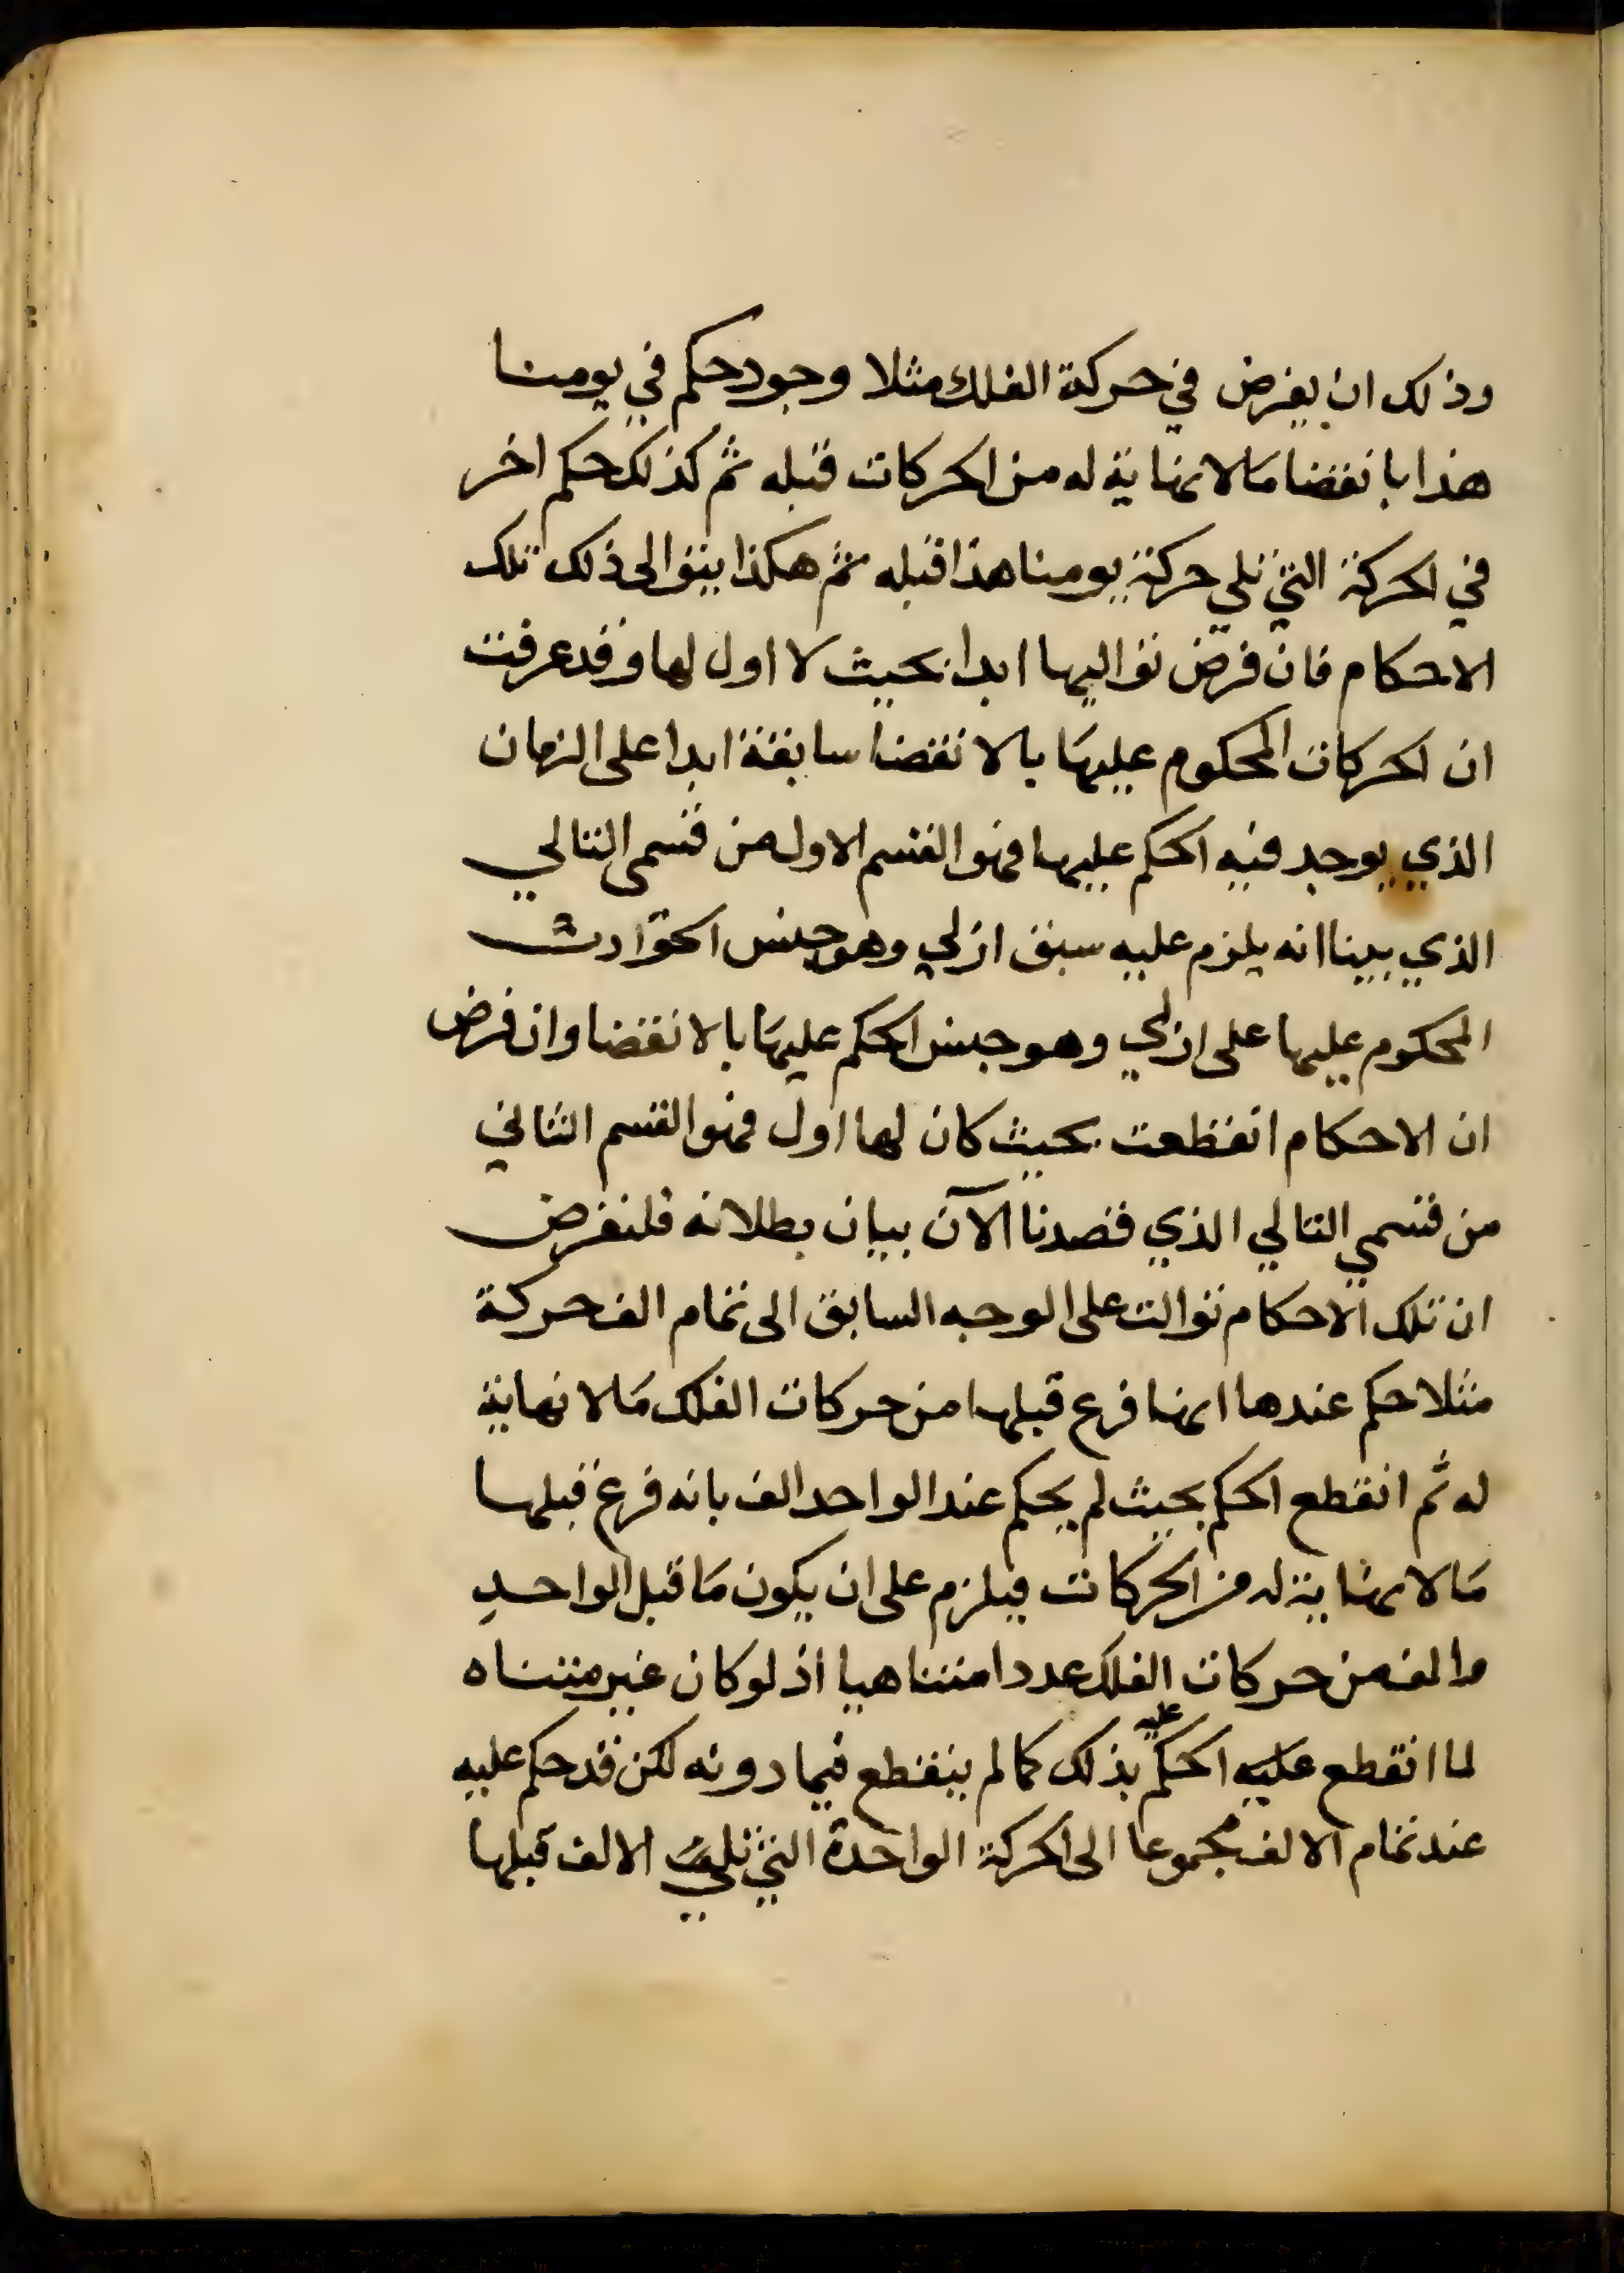 وذلك ان يفرض في حركة الفلك مثلا وجود حكم في يومنا
هذا بانقضا مالا نهاية له من الحركات قبله ثم كذلك حكم اخر
في الحركة التي تلي حركة يومنا هذا قبله ثم هكذا يتوالى ذلك تلك
الاحكام فان فرض تواليها ابدا بحيث لا اول لها وقد عرفت
ان الحركات المحكوم عليها بالانقضا سابقة ابدا على الزمان
الذي يوجد فيه الحكم عليها فهو القسم الاول من قسمي التالي
الذي بينا انه يلزم عليه سبق ازلي وهو جنس الحوادث
المحكوم عليها على ازلي وهو جنس الحكم عليها بالانقضا وان فرض
ان الاحكام انقطعت بحيث كان لها اول فهو القسم الثاني
من قسمي التالي الذي قصدنا الآن بيان بطلانه فلنفرض
ان تلك الاحكام توالت على الوجه السابق الى تمام الف حركة
مثلا حكم عندها انها فرع قبلها من حركات الفلك مالا نهاية
له ثم انقطع الحكم بحيث لم يحكم عند الواحد الف بانه فرغ قبلها
مالا نهاية له من الحركات فيلزم على ان يكون ما قبل الواحد
والف من حركات الفلك عددا متناهيا اذ لو كان غير متناه
لما انقطع عليه الحكم عليه بذلك كما لم ينقطع فيما دونه لكن قد حكم عليه
عند تمام الالف مجموعا الى الحركة الواحدة التي تلي الالف قبلها